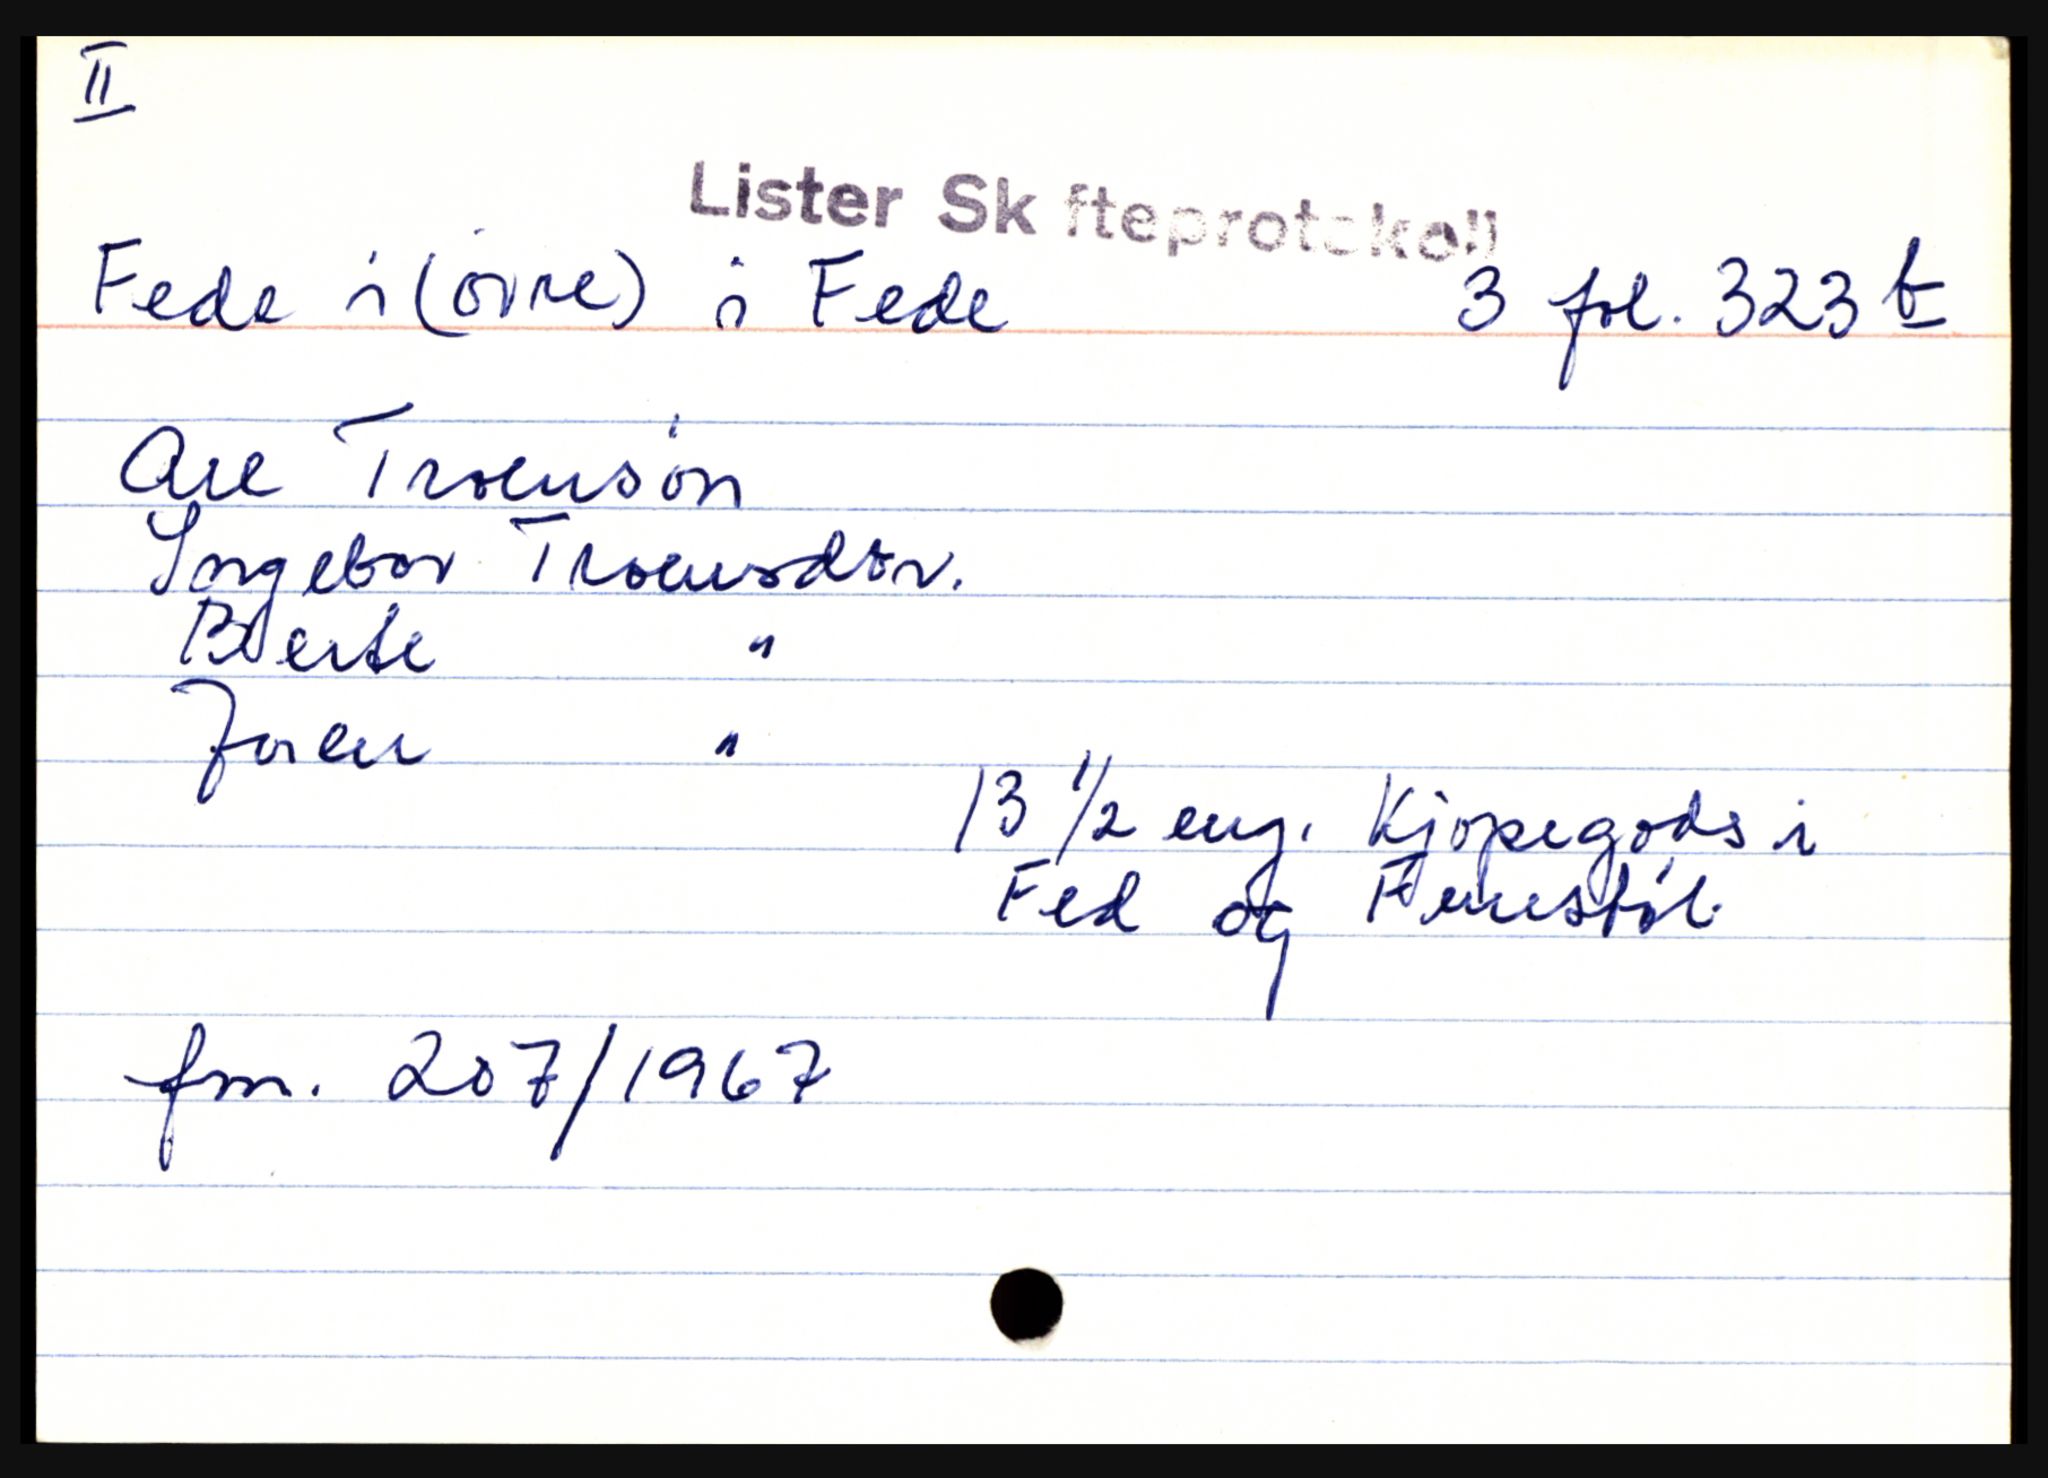 II
Lister Skifteprotokoll
Fede i (övre) i Fede 3 fol. 323 b
Are Troensón
Ingebor Troensdtr.
Berte "
Joren "
13 1/2 eng. Kjöpegods i
Fed og
fm. 207/1967